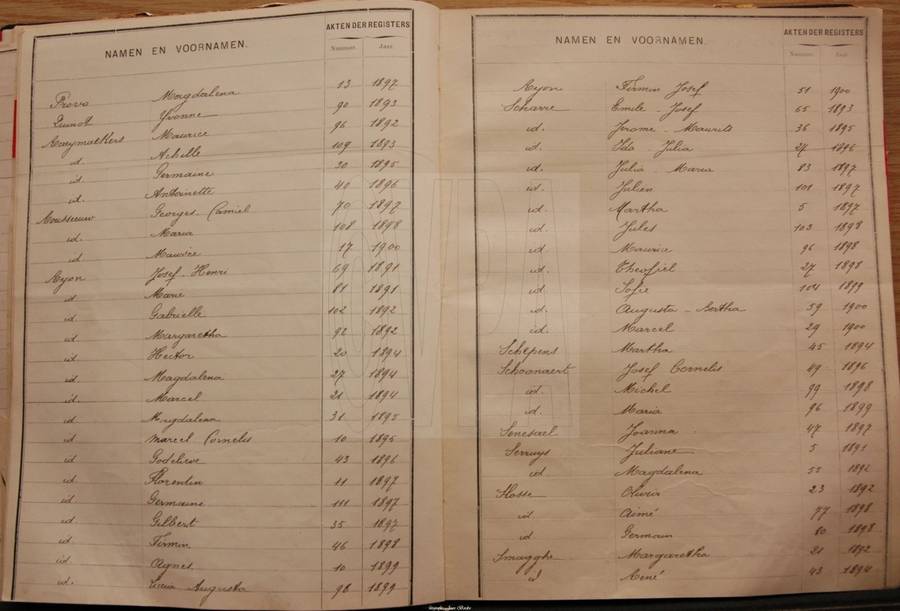 NAMEN EN VOORNAMEN. AKTEN DER REGISTERS
Nummer. Jaar.
Provo Magdalena 13 1897
Quinot Yvonne 90 1893
Raeymaekers Maurice 96 1892
id. Achille 109 1893
id. Germaine 20 1895
id. Antoinette 40 1896
Rousseeuw Georges-Camiel 70 1897
id. Maria 108 1898
id Maurice 17 1900
Ryon Josef-Henri 69 1891
id Marie 81 1891
id. Gabrielle 102 1892
id. Margaretha 92 1892
id Hector 20 1894
id. Magdalena 27 1894
id. Marcel 21 1894
id. Magdalena 31 1895
id Marcel Cornelis 10 1895
id Godelieve 43 1896
id. Florentin 11 1897
id Germaine 111 1897
id. Gilbert 35 1897
id. Firmin 46 1898
id Agnes 10 1899
id. Augusta 98 1899
NAMEN EN VOORNAMEN. AKTEN DER REGISTERS
Nummer. Jaar.
Ryon Firmin Josef 51 1900
Scharre Emile Josef 65 1893
id. Jerome-Maurits 36 1895
id. Ida-Julia 27 1896
id. Julia Maria 83 1897
id. Julien 101 1897
id. Martha 5 1897
id. Jules 103 1898
id Maurice 96 1898
id. Theofiel 27 1898
id. Sofie 101 1899
id. Augusta-Bertha 59 1900
id. Marcel 29 1900
Schepens Martha 45 1894
Schoonaert Josef Cornelis 49 1896
id. Michel 99 1898
id. Maria 96 1899
Senesael Joanna 47 1897
Serruys Juliane 5 1891
id Magdalena 55 1892
Slosse Olivia 23 1892
id. Aimé 77 1898
id Germain 80 1898
Smagghe Margaretha 21 1892
id René 43 1894